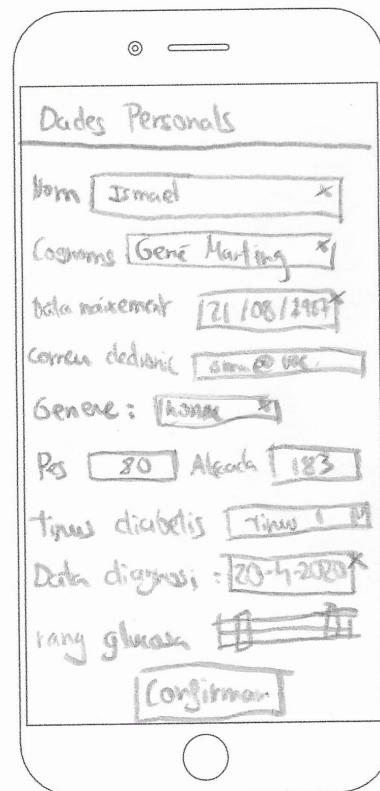 Dades Personals
Nom Ismael x
Cognoms Gené Marting x
Data naixement 21/08/1987 x
correu electronic @ uoc.
Genere: home x
Pes 80 Alçada 183
tipus diabetis tipus 1
Data diagnosi: 20-4-2020 x
rang glucosa
Confirmar